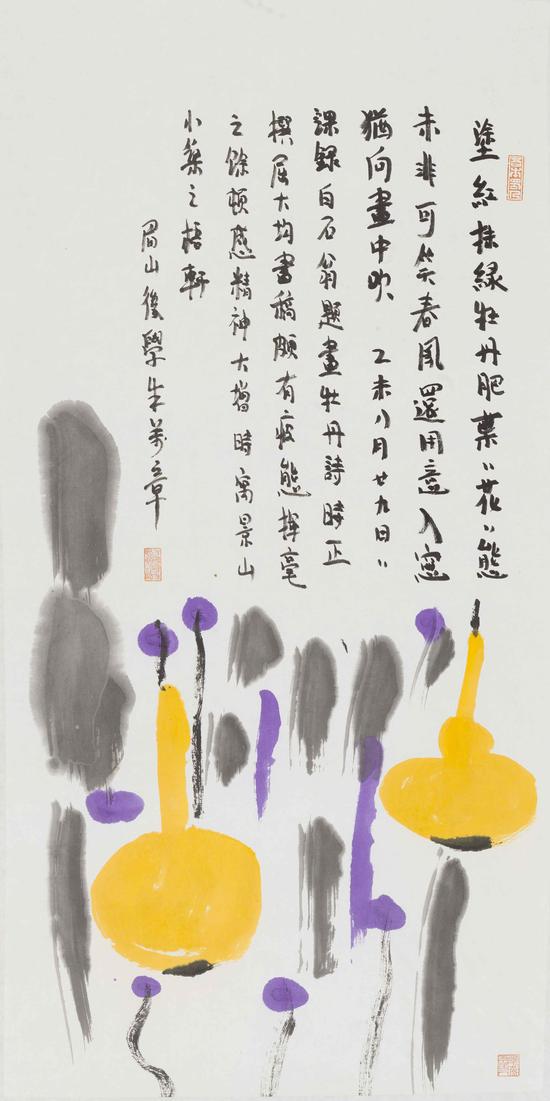 塗紅抹綠牡丹肥葉〻花〻態
未非可笑春風還用意入窓
猶向畫中吹 乙未八月廿九日〻
課錄白石翁題畫牡丹詩時正
撰屈大均書稿頗有疲態揮毫
之餘頓感精神大增時寓景山
小築之梧軒
眉山後學朱萬章